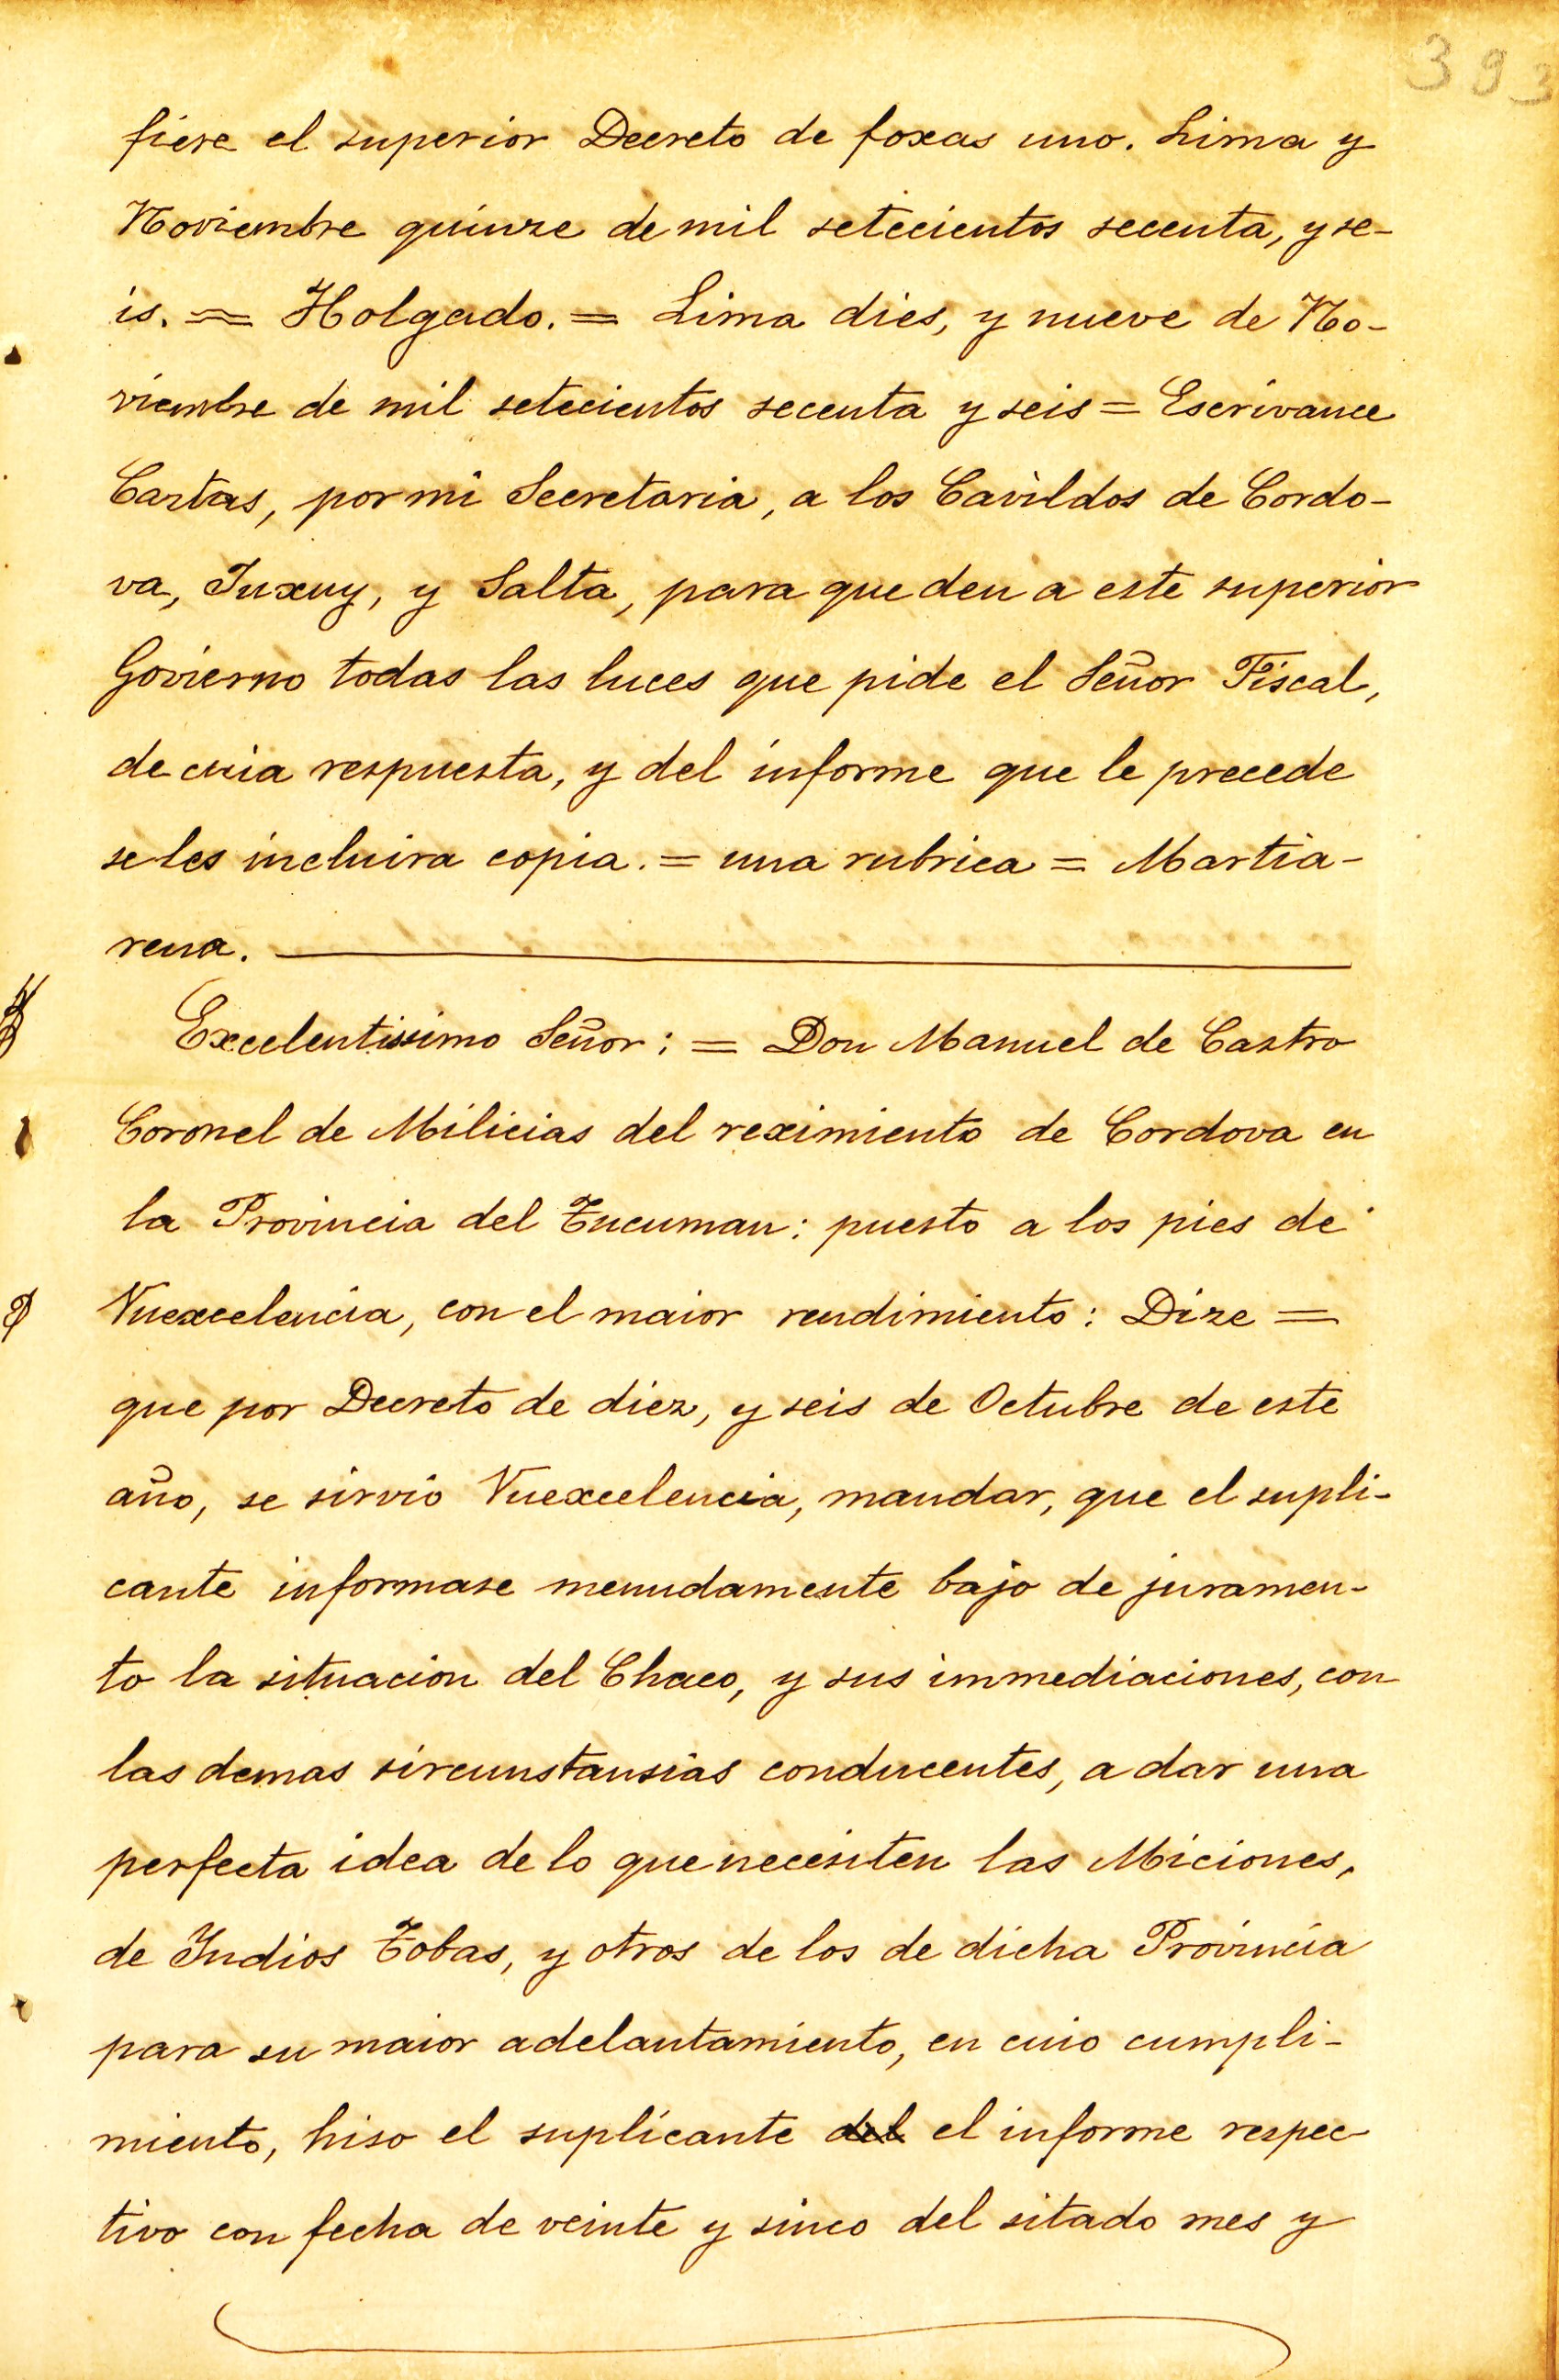 393
fiere el superior Decreto de foxas uno. Lima y
Noviembre quinze de mil setecientos secenta, y se-
is. = Holgado. = Lima dies, y nueve de No-
viembre de mil setecientos secenta y seis = Escrivance
Cartas, por mi Secretaria, a los Cavildos de Cordo-
va, Juxuy, y Salta, para que den a este superior
Govierno todas las luces que pide el Señor Fiscal,
de cuia respuesta, y del informe que le precede
se les incluira copia. = una rubrica = Martia-
rena.
Excelentissimo Señor: = Don Manuel de Castro
Coronel de Milicias del reximiento de Cordova en
la Provincia del Tucuman: puesto a los pies de
Vuexcelencia, con el maior rendimiento: Dize =
que por Decreto de diez, y seis de Octubre de este
año, se sirvio Vuexcelencia, mandar, que el supli-
cante informase menudamente bajo de juramen-
to la situacion del Chaco, y sus immediaciones, con
las demas sircunstansias conducentes, a dar una
perfecta idea de lo que necesiten las Miciones,
de Yndios Tobas, y otros de los de dicha Provincia
para su maior adelantamiento, en cuio cumpli-
miento, hiso el suplicante del el informe respec-
tivo con fecha de veinte y sinco del sitado mes y